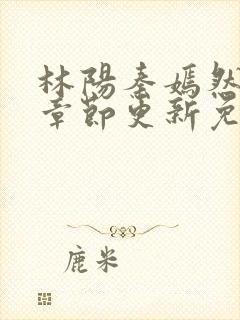 林陽秦嫣然
章節更新免
鹿米